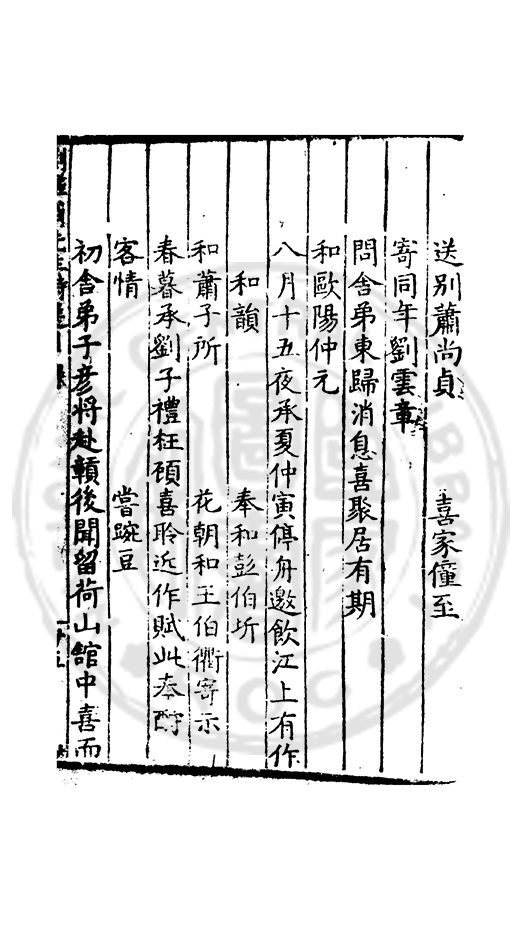 送別蕭尚貞 喜家僮至
寄同年劉雲章
問舍弟東歸消息喜聚居有期
和歐陽仲元
八月十五夜承夏仲寅停舟邀飲江上有作
和韻 奉和彭伯圻
和蕭子所 花朝和王伯衢寄示
春暮承劉子禮枉顧喜聆近作賦此奉酧
客情 嘗豌豆
初舍弟子彦將赴贛後聞留荷山館中喜而